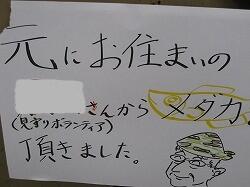 元にお住まいの
さんから メダカ
(見守りボランティア)
頂きました。